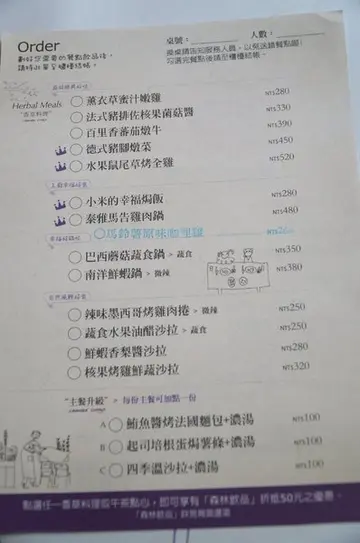 Order
劃好您需要的餐點飲品後,
請將此單至櫃檯結帳。
桌號: 人數:
換桌請告知服務人員,以免送錯餐點喔!
勾選完餐點後請至櫃檯結帳。
Herbal Meals
"香草料理"
薰衣草蜜汁嫩雞 NT$280
法式豬排佐核果菌菇醬 NT$330
百里香蕃茄燉牛 NT$390
德式豬腳燉菜 NT$450
水果鼠尾草烤全雞 NT$520
小米的幸福焗飯 NT$280
泰雅馬告雞肉鍋 NT$480
馬鈴薯原味咖哩雞
巴西蘑菇蔬食鍋 > 蔬食 NT$350
南洋鮮蝦鍋 > 微辣 NT$380
辣味墨西哥烤雞肉捲 > 微辣 NT$250
蔬食水果油醋沙拉 > 蔬食 NT$250
鮮蝦香梨醬沙拉 NT$280
核果烤雞鮮蔬沙拉 NT$320
"主餐升級" > 每份主餐可加點一份
A 鮪魚醬烤法國麵包+濃湯 NT$100
B 起司培根蛋焗薯條+濃湯 NT$100
C 四季溫沙拉+濃湯 NT$100
點選任一香草料理或午茶點心,即可享有「森林飲品」折抵50元之優惠。